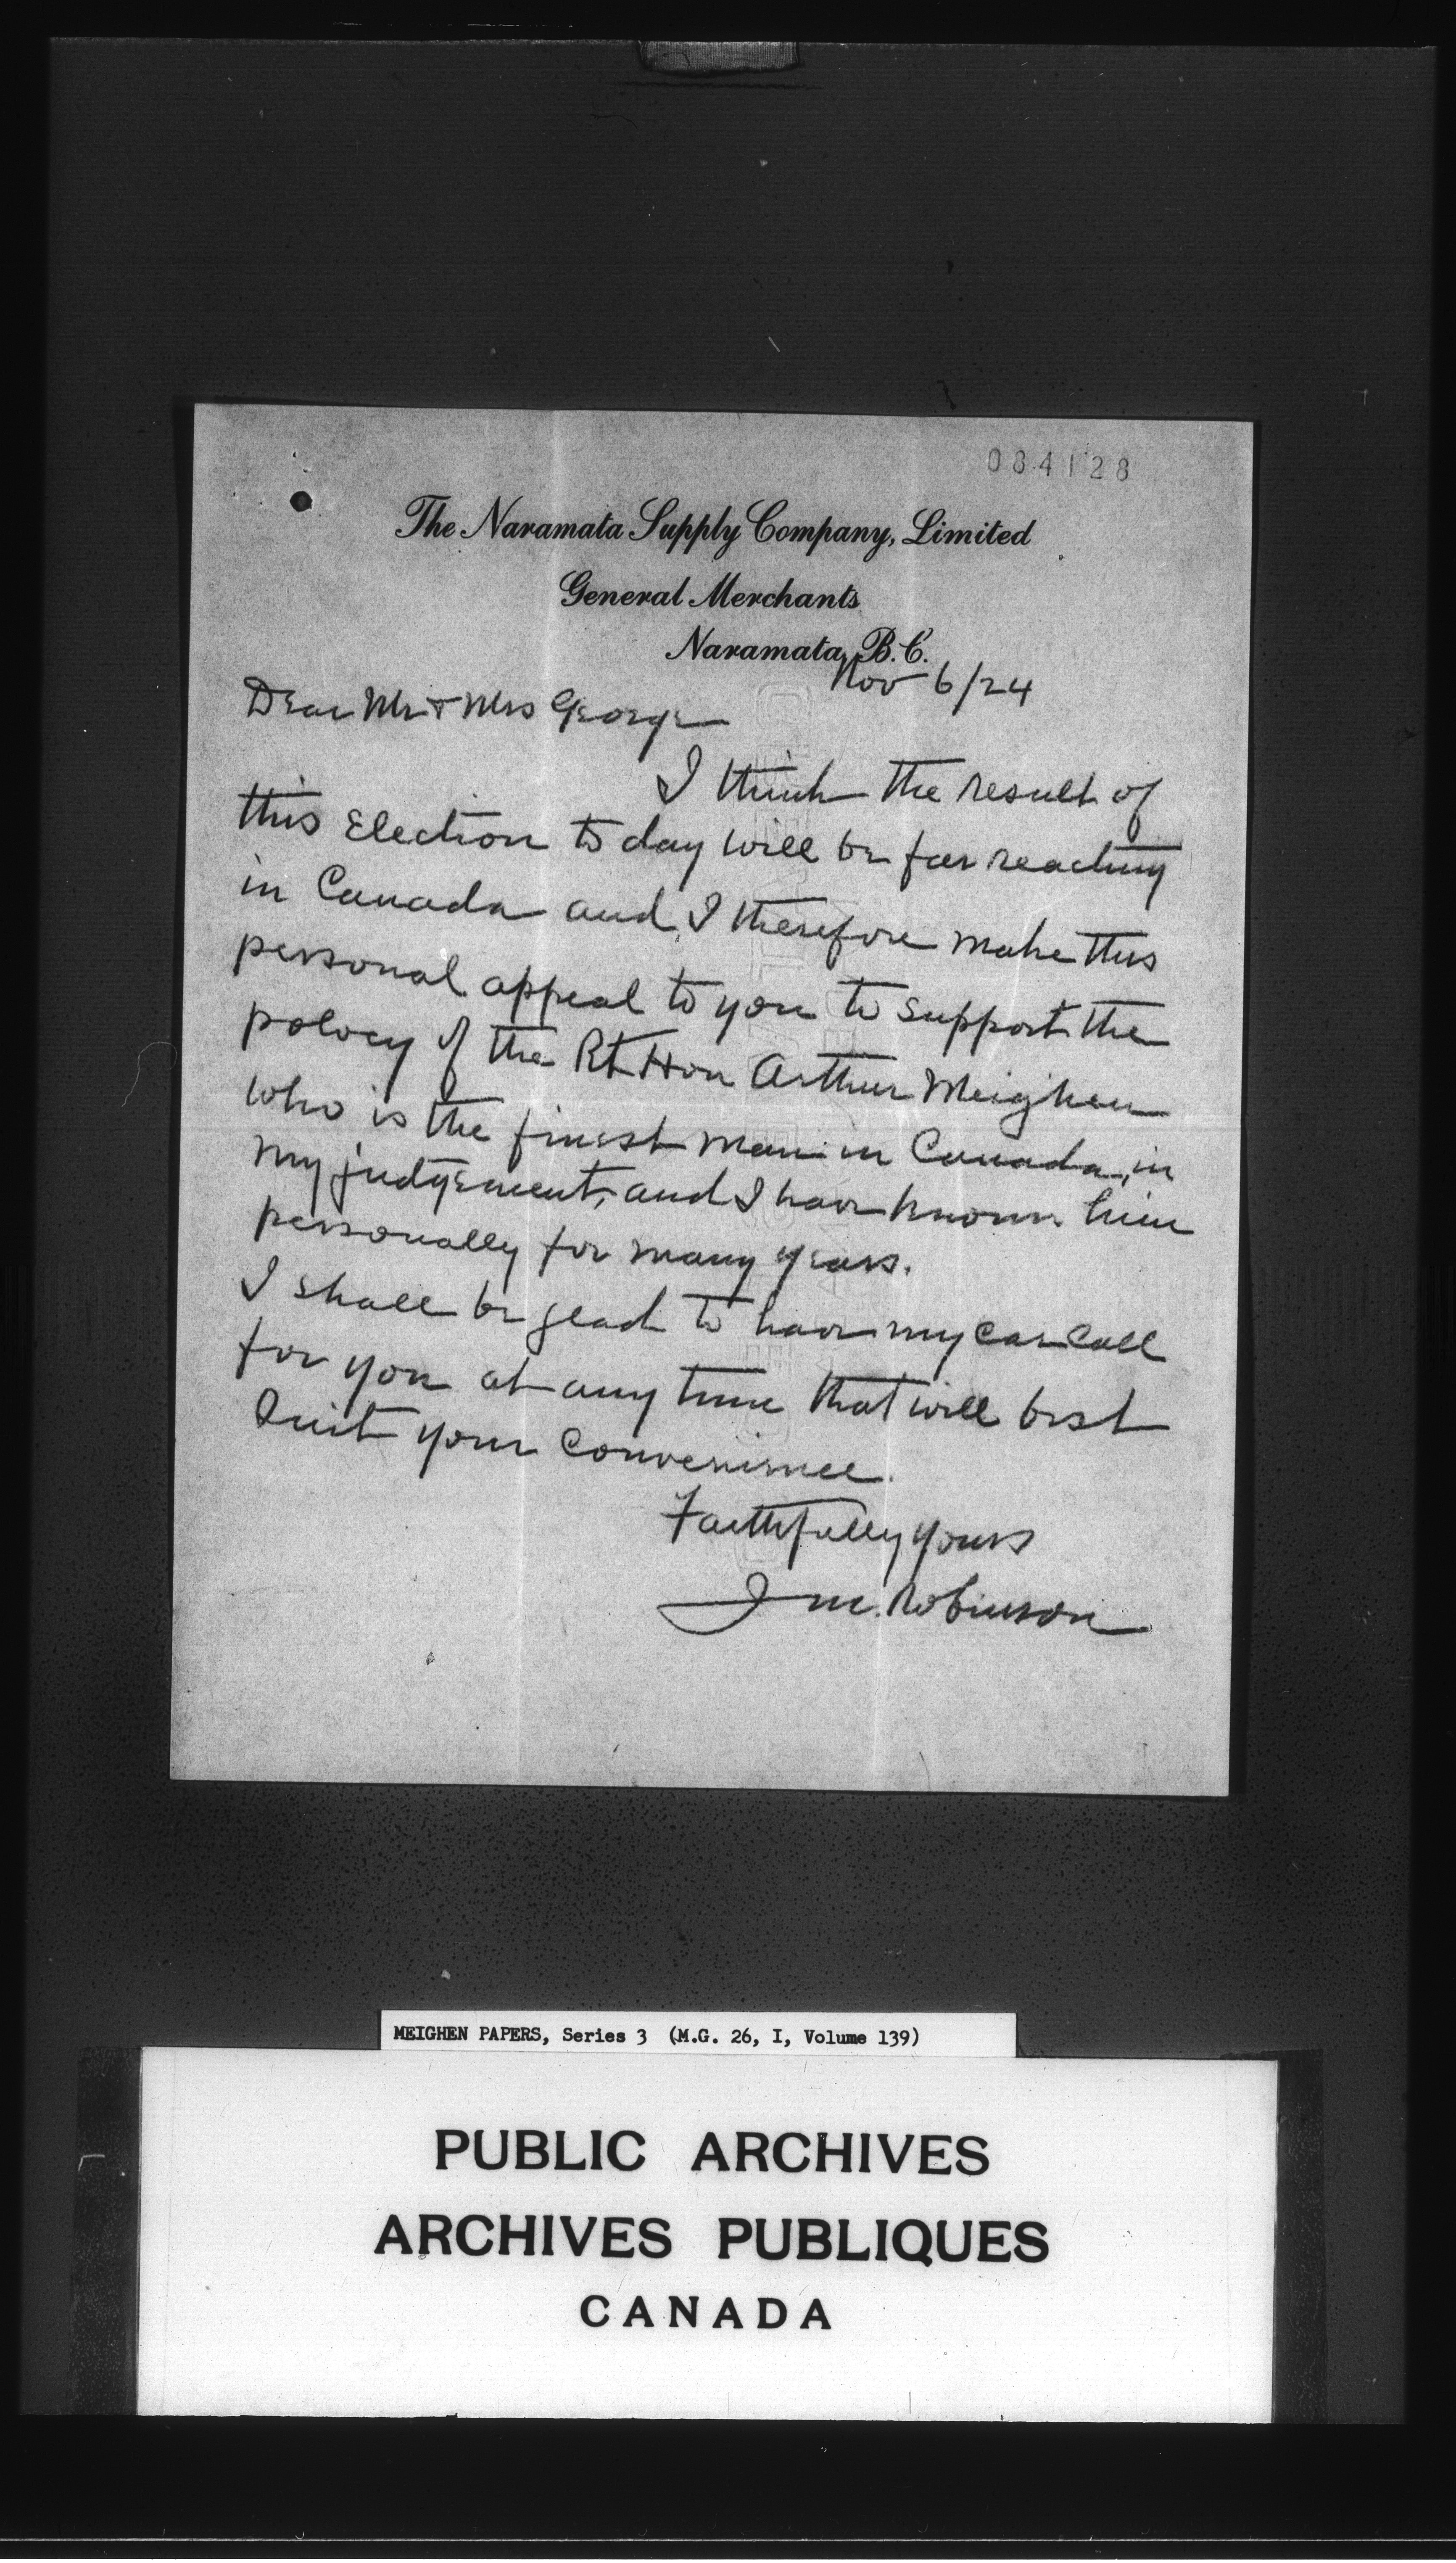 084128
The Naramata Supply Company, Limited
General Merchants
Naramata, B.C.
Nov 6/24
Dear Mr & Mrs George
I think the result of
this Election to day will be far reaching
in Canada and I therefore make this
personal appeal to you to support the
polocy of the Rt Hon Arthur Meighen
who is the finest man in Canada, in
my judgement, and I have known him
personally for many years.
I shall be glad to have my car call
for you at any time that will best
suit your convenience.
Faithfully yours
J M. Robinson
MEIGHEN PAPERS, Series 3 (M.G. 26, I, Volume 139)
PUBLIC ARCHIVES
ARCHIVES PUBLIQUES
CANADA